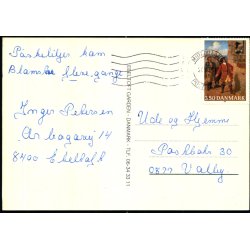 Påskehilsen ham
Blomster flere gange
Inger Petersen
8400 Ebeltoft
DANMARK · TLF. 06-34 33 11
3.50 DANMARK
Ude og Hjemme
Postboks 30
0877 Valby